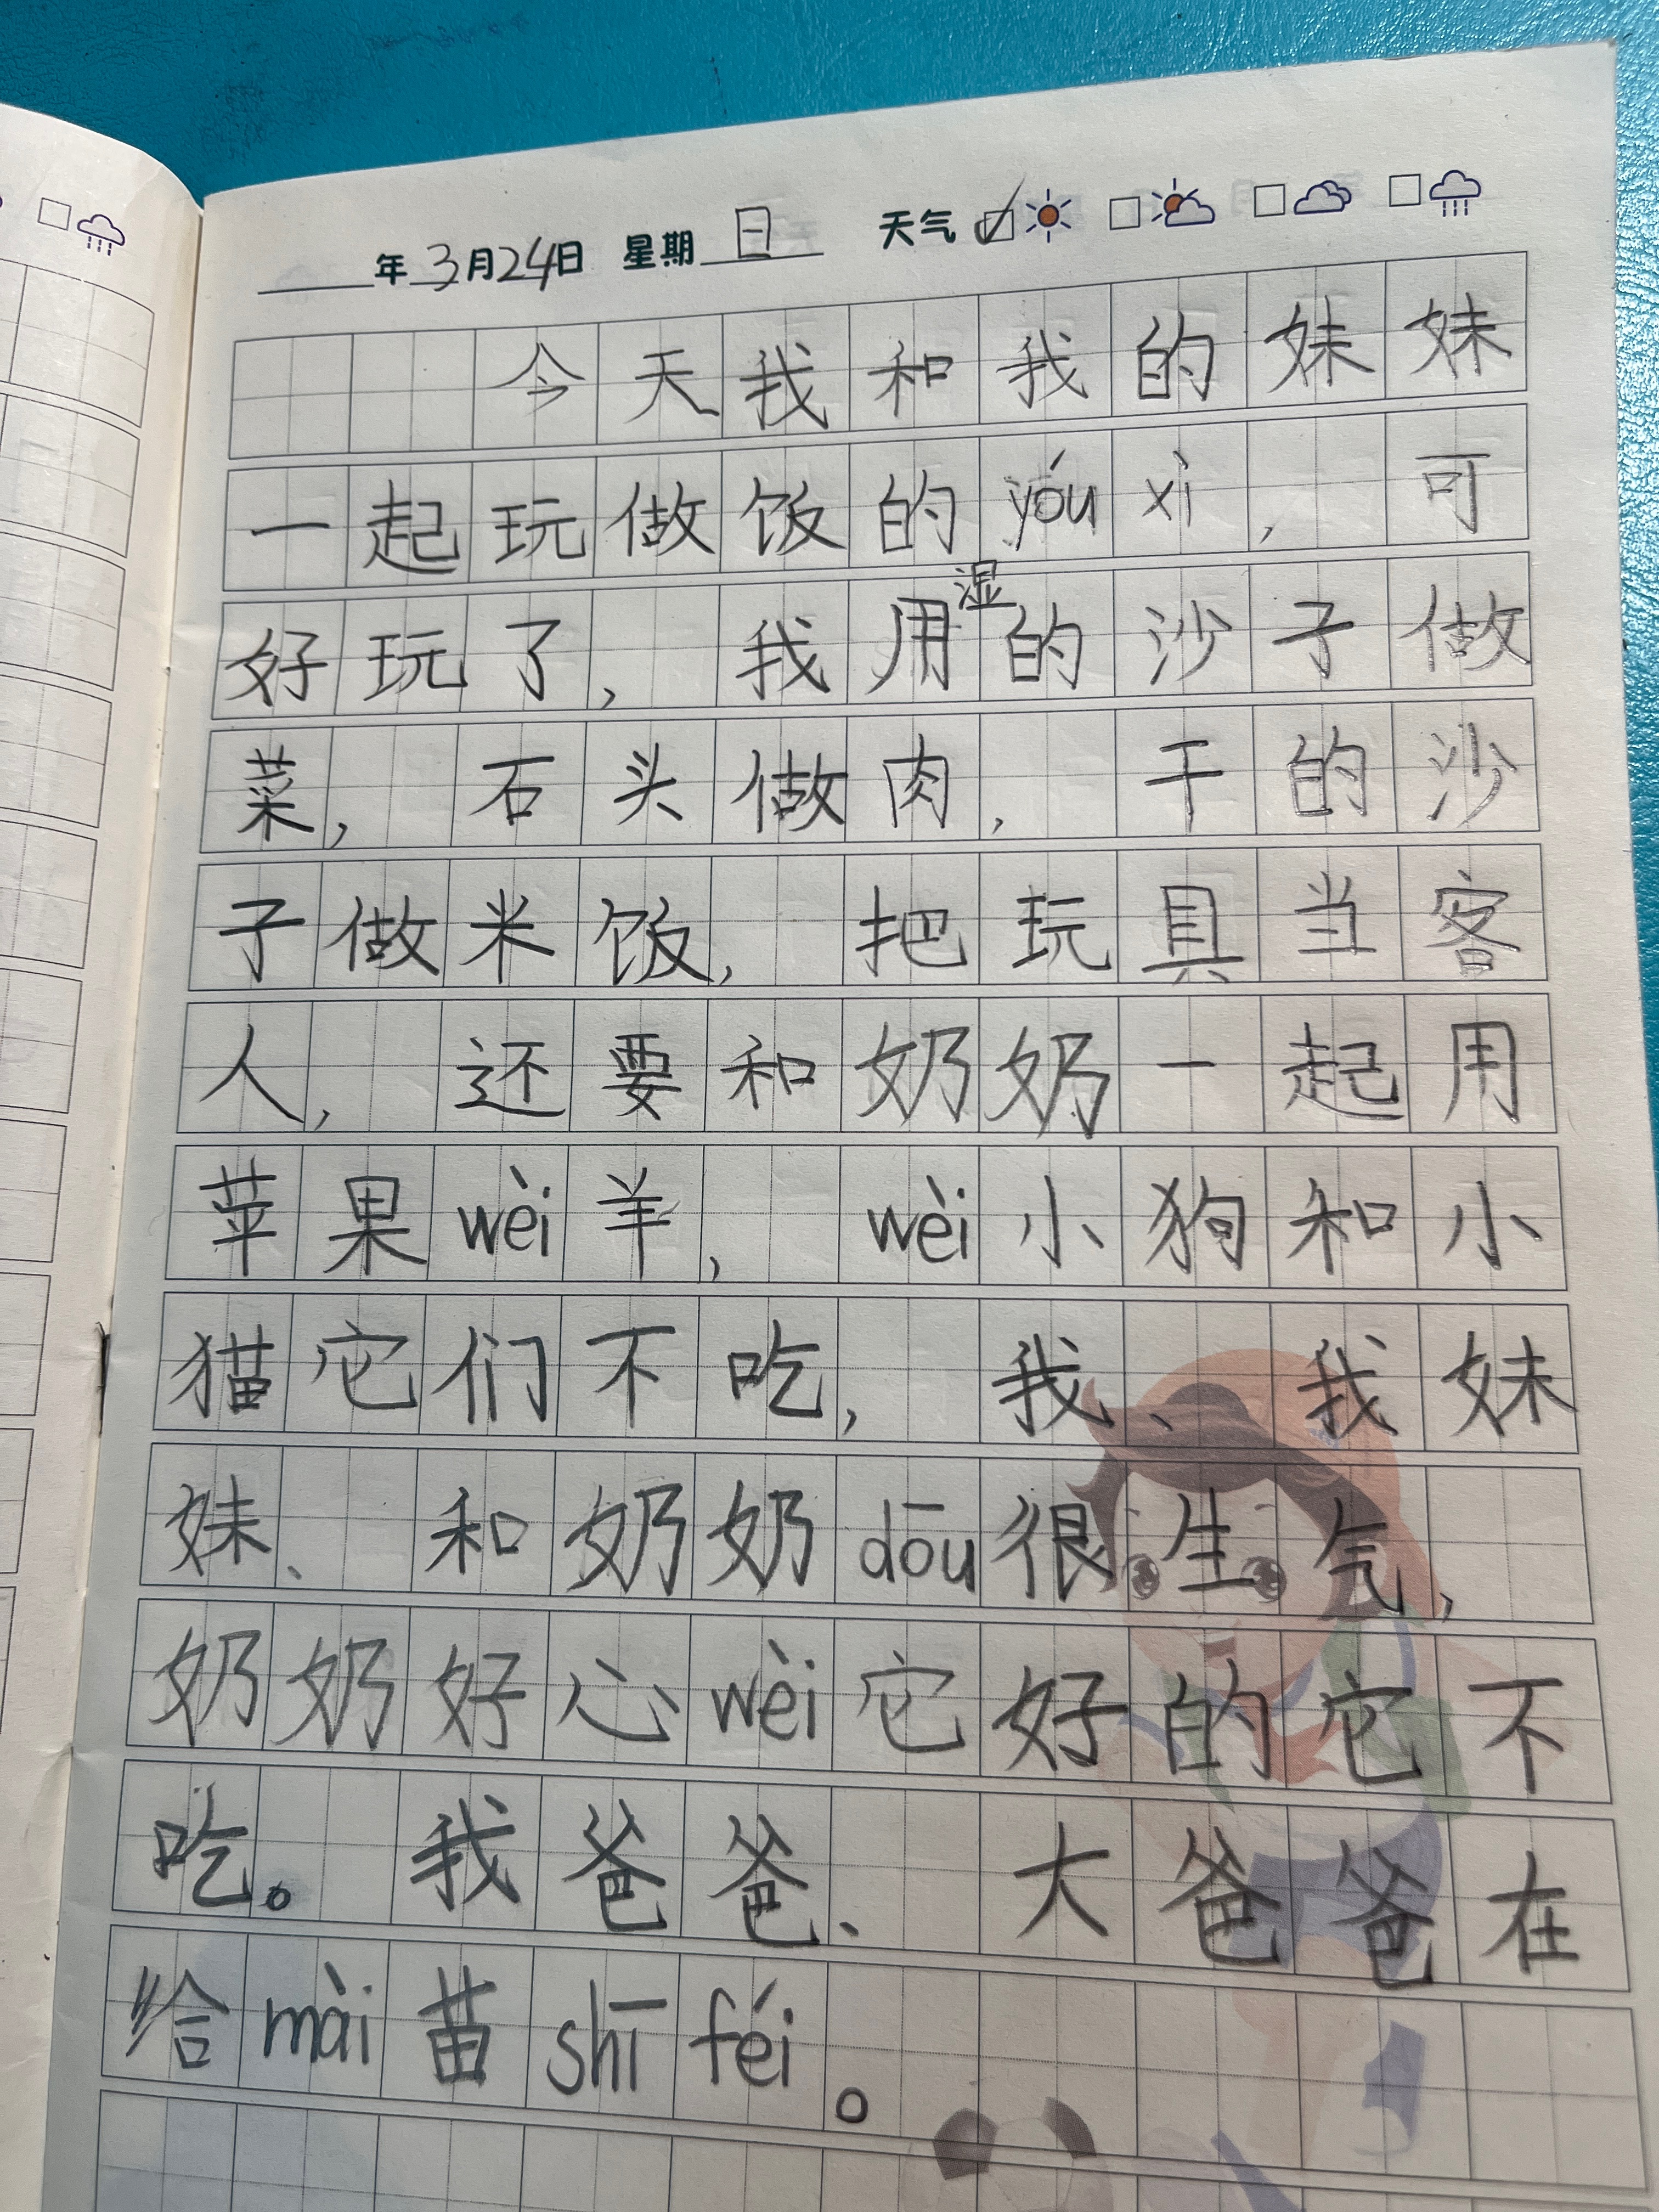 年 3月24日 星期 日 天气
今天我和我的妹妹
一起玩做饭的yóu xì，可
好玩了，我用湿的沙子做
菜，石头做肉，干的沙
子做米饭，把玩具当客
人，还要和奶奶一起用
苹果wèi羊，wèi小狗和小
猫它们不吃，我、我妹
妹、和奶奶dōu很生气，
奶奶好心wèi它好的它不
吃。我爸爸、大爸爸在
给mài苗shī féi。